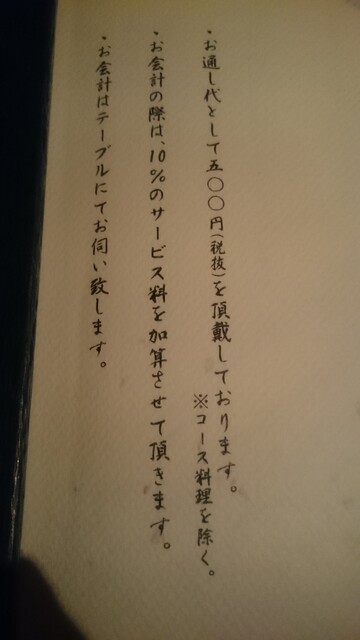 ・お通し代として五〇〇円(税抜)を頂戴しております。
※コース料理を除く。
・お会計の際は、10%のサービス料を加算させて頂きます。
・お会計はテーブルにてお伺い致します。